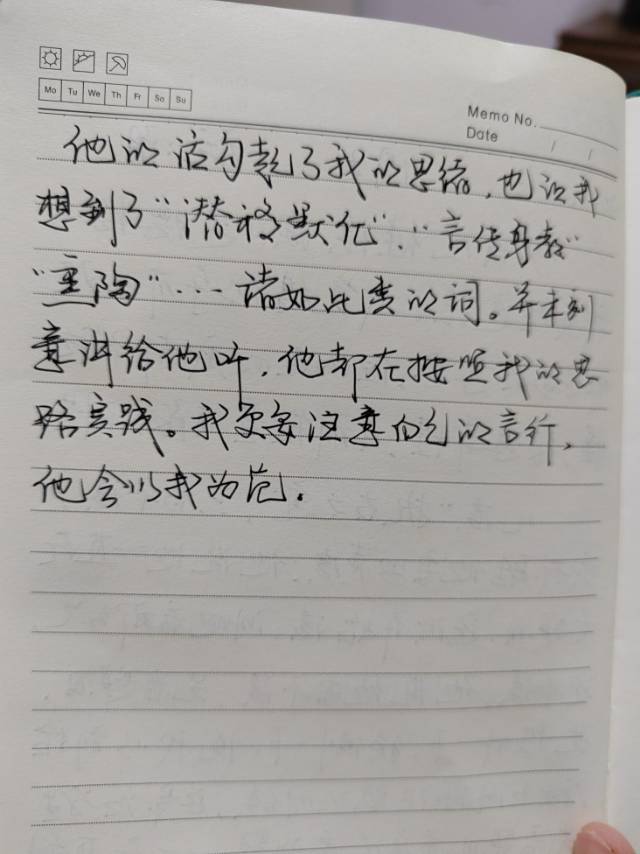 Mo Tu We Th Fr Sa Su
Memo No.
Date / /
他的话勾起了我的思绪，也让我
想到了“潜移默化”.“言传身教”
“熏陶”...诸如此类的词。并未刻
意讲给他听，他都在按照我的思
路实践。我更要注意自己的言行，
他会以我为范.